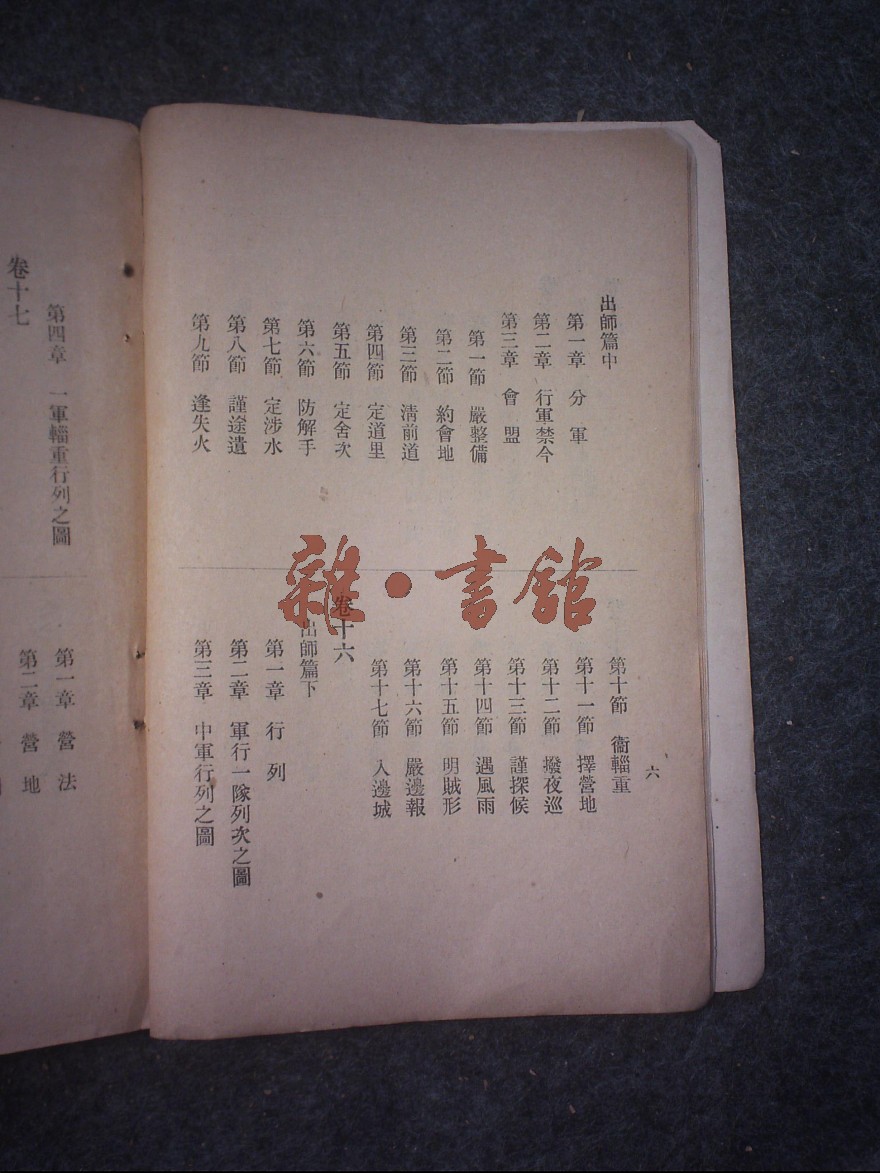 出師篇中
第一章　分　軍
第二章　行軍禁令
第三章　會　盟
第一節　嚴整備
第二節　約會地
第三節　清前道
第四節　定道里
第五節　定舍次
第六節　防解手
第七節　定涉水
第八節　謹途遺
第九節　逢失火
六
第十節　衞輜重
第十一節　擇營地
第十二節　撥夜巡
第十三節　謹探候
第十四節　遇風雨
第十五節　明賊形
第十六節　嚴邊報
第十七節　入邊城
卷十六
出師篇下
第一章　行　列
第二章　軍行一隊列次之圖
第三章　中軍行列之圖
第四章　一軍輜重行列之圖
卷十七
第一章　營　法
第二章　營　地
雜·書館